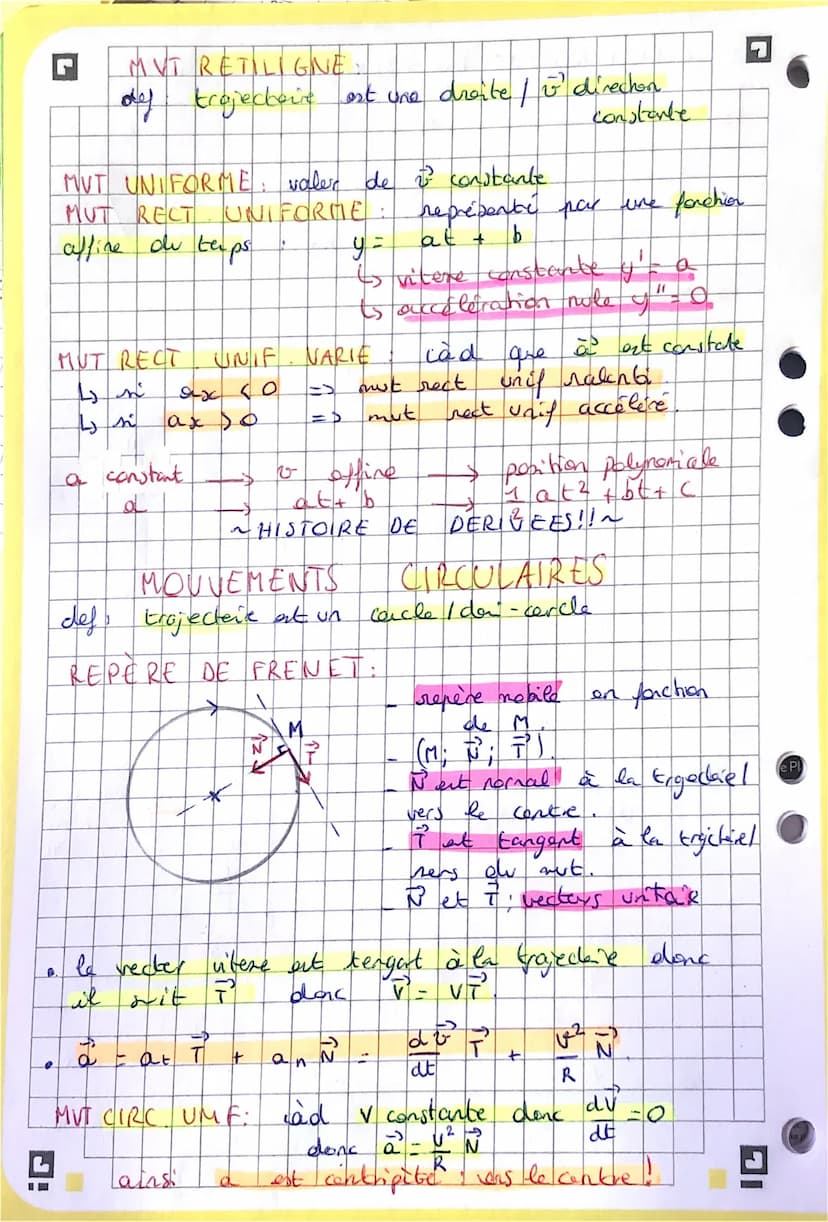 MVT RETILIGNE :
def : trajectoire est une droite / v⃗ direction
constante
MVT UNIFORME : valeur de v⃗ constante
MVT RECT. UNIFORME : représenté par une fonction
affine du temps : y = at + b
↳ vitesse constante y' = a
↳ accélération nulle y'' = 0
MVT RECT. UNIF. VARIE : càd que a⃗ est constate
↳ si ax < 0 => mvt rect unif ralenti
↳ si ax > 0 => mvt rect unif accéléré.
a constant → v affine → position polynomiale
a → at + b → 1/2 at² + bt + c
~ HISTOIRE DE DERIVEES!! ~
MOUVEMENTS CIRCULAIRES
def : trajectoire est un cercle / demi-cercle
REPÈRE DE FRENET :
M
N⃗ T⃗
- repère mobile en fonction
de M.
- (M; N⃗; T⃗).
- N⃗ est normal à la trajectoire/
vers le centre.
- T⃗ est tangent à la trajectoire/
sens du mvt.
- N⃗ et T⃗ : vecteurs unitaire
• le vecteur vitesse est tangent à la trajectoire donc
il suit T⃗ donc V⃗ = VT⃗.
• a⃗ = at T⃗ + an N⃗ = dv⃗/dt T⃗ + v²/R N⃗.
MVT CIRC. UNIF : càd V constante donc dV⃗/dt = 0
donc a⃗ = V²/R N⃗
ainsi a est centripète : vers le centre !